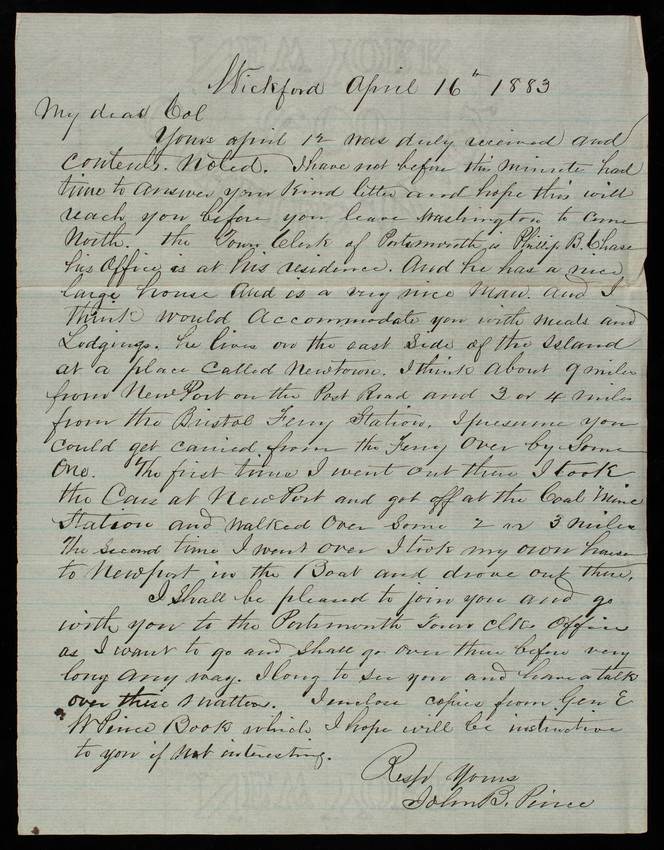 Wickford April 16th 1883
My dear Col
Yours april 12 was duly received and
contents. Noted. I have not before this minute had
time to answer your Kind letter and hope this will
reach you before you leave Washington to come
North. the Town Clerk of Portsmouth is Phillip B. Chase
his Office is at his residence. And he has a nice
large house And is a very nice Man. and I
think would Accommodate you with meals and
Lodgings. he lives on the east Side of the Island
at a place called Newtown. I think about 9 miles
from NewPort on the Post Road and 3 or 4 miles
from the Bristol Ferry Station. I presume you
could get carried from the Ferry Over by Some
One. The first time I went out there I took
the Cars at NewPort and got off at the Coal Mine
Station and Walked Over Some 2 or 3 miles
The Second time I went over I took my own horse
to Newport in the Boat and drove out there.
I Shall be pleased to join you and go
with you to the Portsmouth Town Clks Office
as I want to go and Shall go over there before very
long Any way. I long to see you and have a talk
over these Matters. I enclose copies from Gen E
W Pierce Book which I hope will be instructive
to you if Not interesting.
Resp'd Yours
John B. Pierce